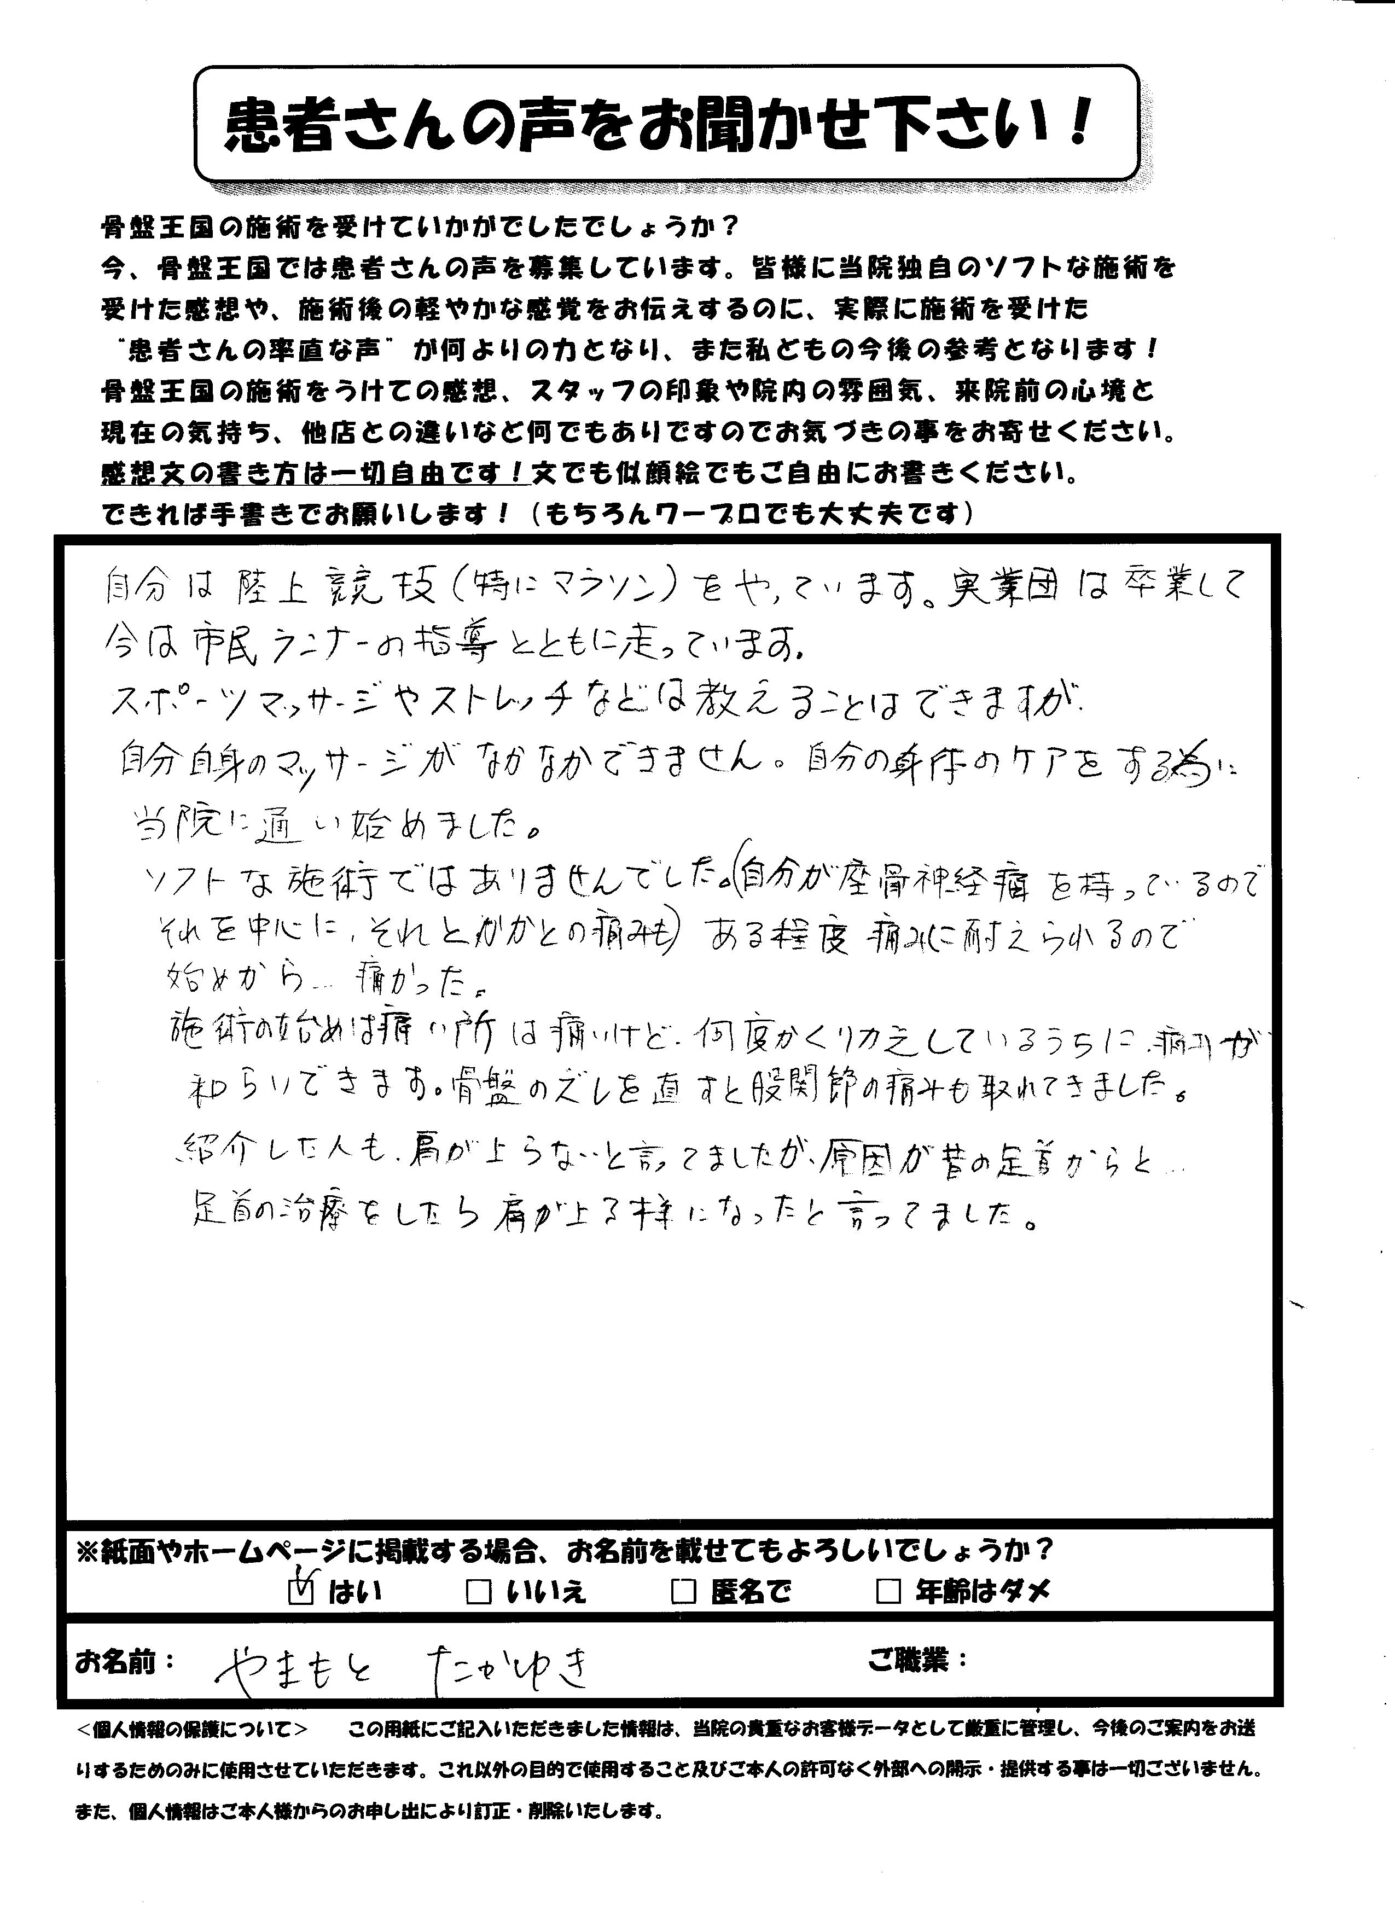 患者さんの声をお聞かせ下さい！
骨盤王国の施術を受けていかがでしたでしょうか？
今、骨盤王国では患者さんの声を募集しています。皆様に当院独自のソフトな施術を
受けた感想や、施術後の軽やかな感覚をお伝えするのに、実際に施術を受けた
“患者さんの率直な声”が何よりの力となり、また私どもの今後の参考となります！
骨盤王国の施術をうけての感想、スタッフの印象や院内の雰囲気、来院前の心境と
現在の気持ち、他店との違いなど何でもありですのでお気づきの事をお寄せください。
感想文の書き方は一切自由です！文でも似顔絵でもご自由にお書きください。
できれば手書きでお願いします！（もちろんワープロでも大丈夫です）
自分は陸上競技（特にマラソン）をやっています。実業団は卒業して
今は市民ランナーの指導とともに走っています。
スポーツマッサージやストレッチなどは教えることはできますが、
自分自身のマッサージがなかなかできません。自分の身体のケアをする為に
当院に通い始めました。
ソフトな施術ではありませんでした。（自分が座骨神経痛を持っているので
それを中心に、それとかかとの痛みも）ある程度痛みに耐えられるので
始めから…痛かった。
施術の始めは痛い所は痛いけど、何度かくりかえしているうちに、痛みが
和らいできます。骨盤のズレを直すと股関節の痛みも取れてきました。
紹介した人も、肩が上らないと言ってましたが、原因が昔の足首からと…
足首の治療をしたら肩が上る様になったと言ってました。
※紙面やホームページに掲載する場合、お名前を載せてもよろしいでしょうか？
☑ はい □ いいえ □ 匿名で □ 年齢はダメ
お名前： やまもと たかゆき ご職業：
＜個人情報の保護について＞ この用紙にご記入いただきました情報は、当院の貴重なお客様データとして厳重に管理し、今後のご案内をお送
りするためのみに使用させていただきます。これ以外の目的で使用すること及びご本人の許可なく外部への開示・提供する事は一切ございません。
また、個人情報はご本人様からのお申し出により訂正・削除いたします。